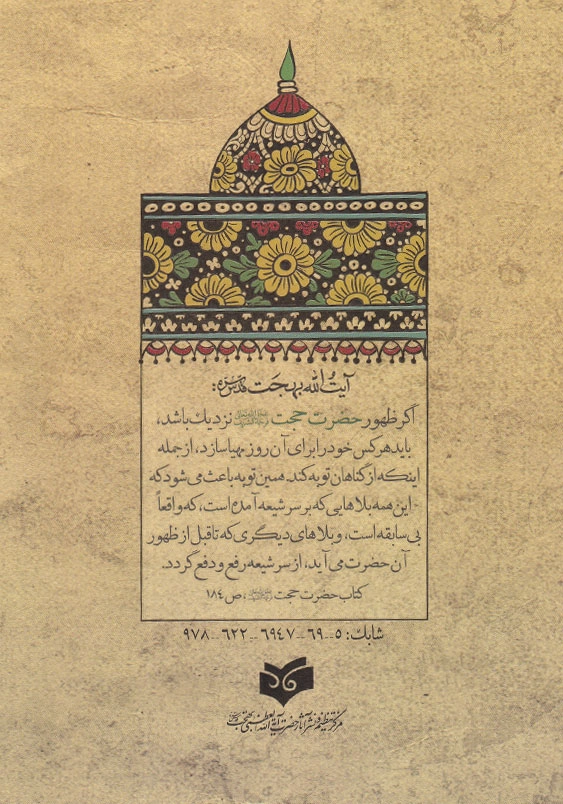 آیت‌الله بهجت قدّس‌سرّه:
اگر ظهور حضرت حجت عجل‌الله‌تعالی‌فرجه‌الشریف نزدیک باشد،
باید هرکس خود را برای آن روز مهیا سازد، از جمله
اینکه از گناهان توبه کند. همین توبه باعث می‌شود که
این همه بلاهایی که بر سر شیعه آمده است، که واقعاً
بی‌سابقه است، و بلاهای دیگری که تا قبل از ظهور
آن حضرت می‌آید، از سر شیعه رفع و دفع گردد.
کتاب حضرت حجت، ص ۱۸۴
شابک: ۵-۶۹-۶۹۴۷-۶۲۲-۹۷۸
مرکز تنظیم و نشر آثار حضرت آیة‌الله العظمی بهجت